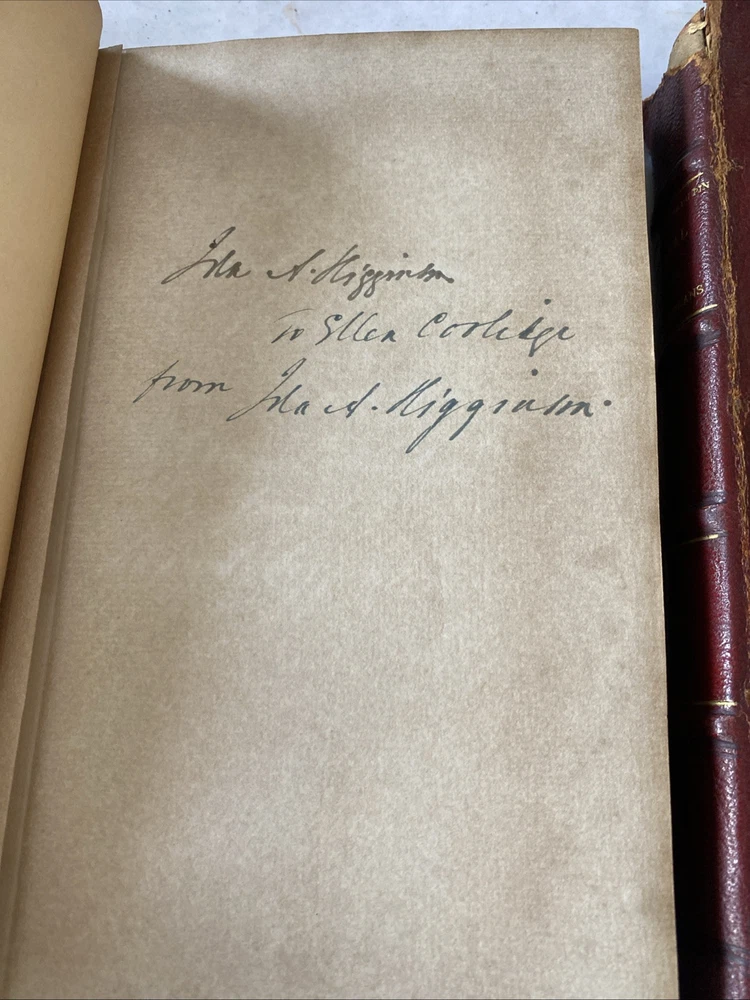 Ida A. Higginson
To Ellen Coolidge
from Ida A. Higginson.